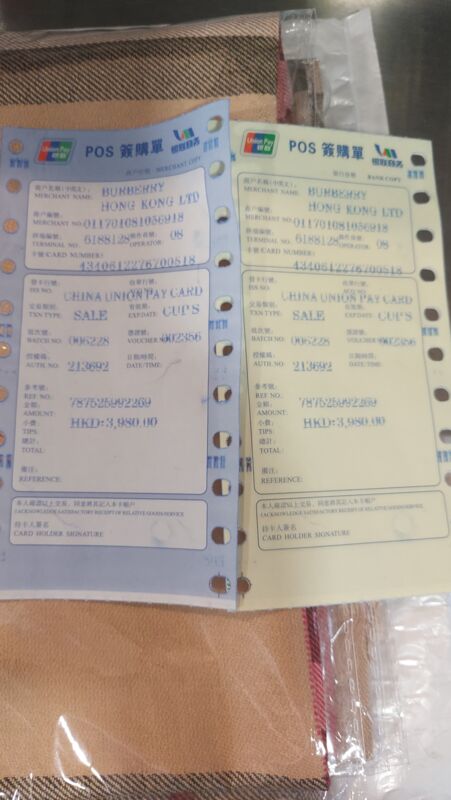 Union Pay
银联
POS 簽購單
銀聯商務
商户存根 MERCHANT COPY
商户名稱(中英文):
MERCHANT NAME:
BURBERRY
HONG KONG LTD
商户編號:
MERCHANT NO:
011701081056918
終端編號:
TERMINAL NO:
6188128
操作員號:
OPERATOR:
08
卡號/CARD NUMBER:
4340612276700518
發卡行號:
ISS NO:
CHINA UNION PAY CARD
交易類別:
TXN TYPE:
SALE
有效期:
EXP.DATE:
CUPS
批次號:
BATCH NO:
006228
憑證號:
VOUCHER NO:
002356
授權碼:
AUTH. NO:
213692
日期/時間:
DATE/TIME:
參考號:
REF. NO:
787525992269
金額:
AMOUNT:
HKD:3,980.00
小費:
TIPS:
總計:
TOTAL:
備注:
REFERENCE:
本人確認以上交易,同意將其記入本卡帳戶
I ACKNOWLEDGE SATISFACTORY RECEIPT OF RELATIVE GOODS/SERVICE
持卡人簽名
CARD HOLDER SIGNATURE
Union Pay
银联
POS 簽購單
銀聯商務
銀行存根 BANK COPY
商户名稱(中英文):
MERCHANT NAME:
BURBERRY
HONG KONG LTD
商户編號:
MERCHANT NO:
011701081056918
終端編號:
TERMINAL NO:
6188128
操作員號:
OPERATOR:
08
卡號/CARD NUMBER:
4340612276700518
發卡行號:
ISS NO:
CHINA UNION PAY CARD
交易類別:
TXN TYPE:
SALE
有效期:
EXP.DATE:
CUPS
批次號:
BATCH NO:
006228
憑證號:
VOUCHER NO:
002356
授權碼:
AUTH. NO:
213692
日期/時間:
DATE/TIME:
參考號:
REF. NO:
787525992269
金額:
AMOUNT:
HKD:3,980.00
小費:
TIPS:
總計:
TOTAL:
備注:
REFERENCE:
本人確認以上交易,同意將其記入本卡帳戶
I ACKNOWLEDGE SATISFACTORY RECEIPT OF RELATIVE GOODS/SERVICE
持卡人簽名
CARD HOLDER SIGNATURE